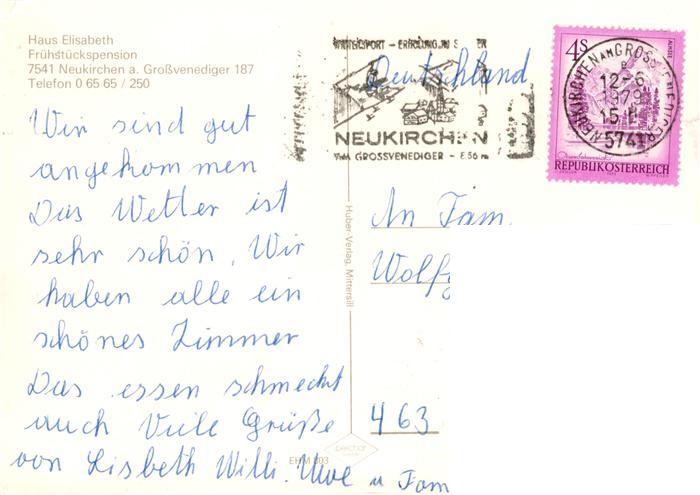 Haus Elisabeth
Frühstückspension
7541 Neukirchen a. Großvenediger 187
Telefon 0 65 65 / 250
Wir sind gut
angekommen
Das Wetter ist
sehr schön. Wir
haben alle ein
schönes Zimmer
Das essen schmeckt
auch Viele Grüße
von Lisbeth Willi. Uwe u Fam
Huber-Verlag, Mittersill
EHM 803
ERHOLUNG IM
NEUKIRCHEN
AM GROSSVENEDIGER - 856 m
Deutschland
4S
REPUBLIK ÖSTERREICH
NEUKIRCHEN AM GROSSVENEDIGER
12-6
1979
5741
An Fam
Wolfg
463